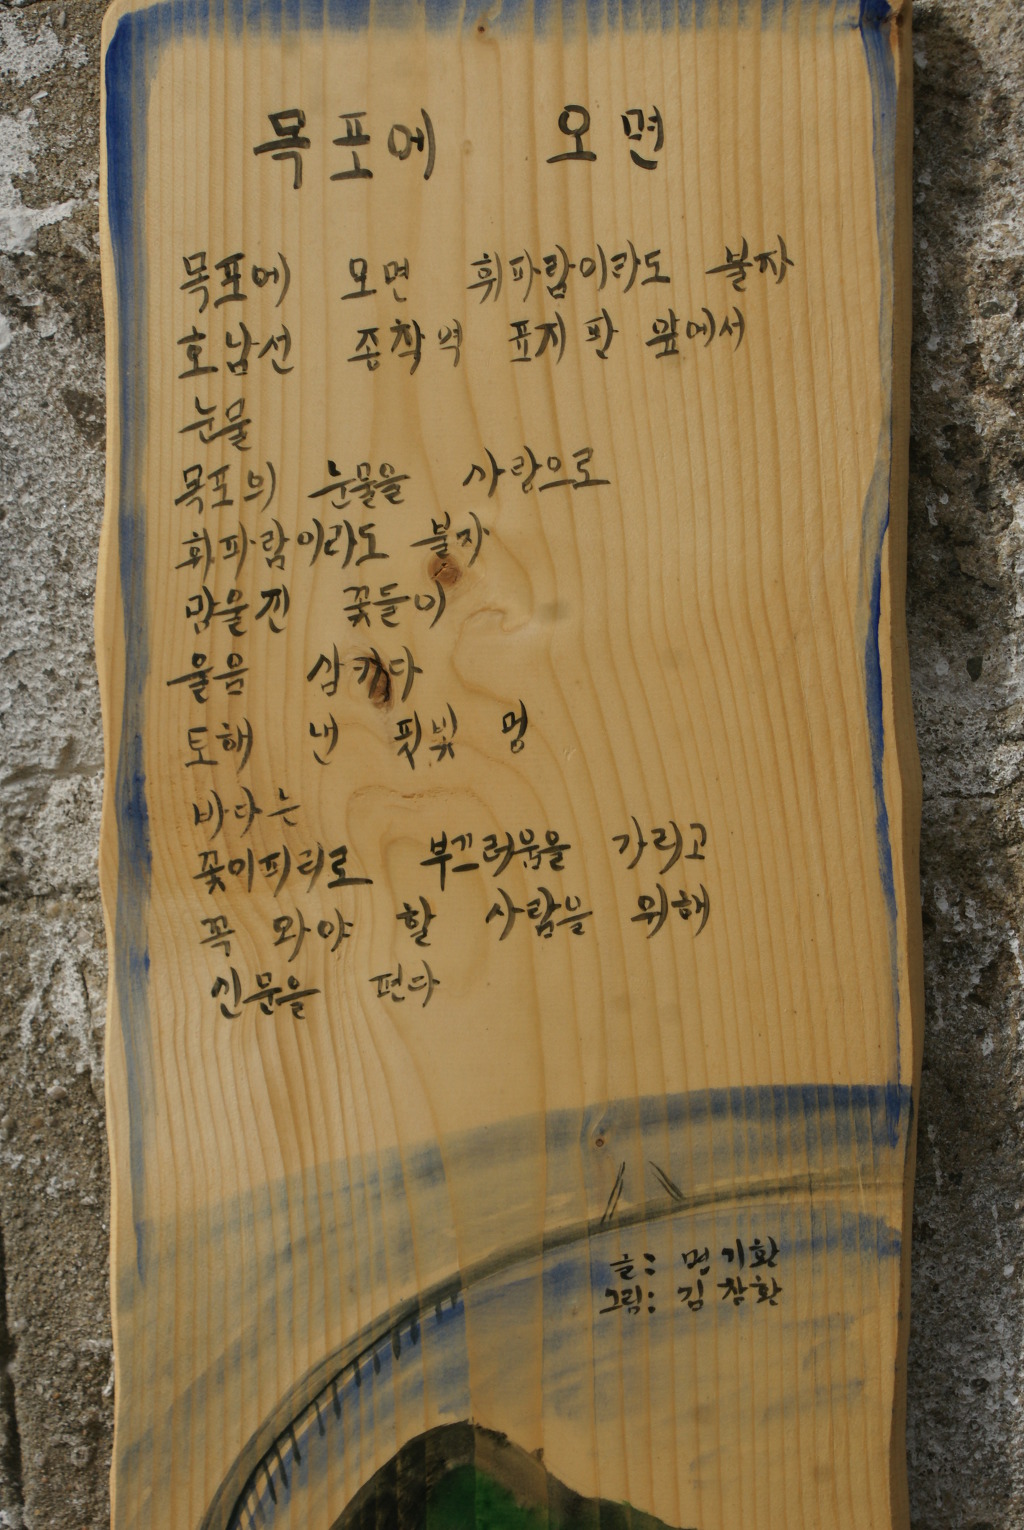 목포에 오면
목포에 오면 휘파람이라도 불자
호남선 종착역 표지판 앞에서
눈물
목포의 눈물을 사랑으로
휘파람이라도 불자
망울진 꽃들이
울음 삼키다
토해 낸 핏빛 멍
바다는
꽃이파리로 부끄러움을 가리고
꼭 와야 할 사람을 위해
신문을 편다
글: 명기환
그림: 김창환